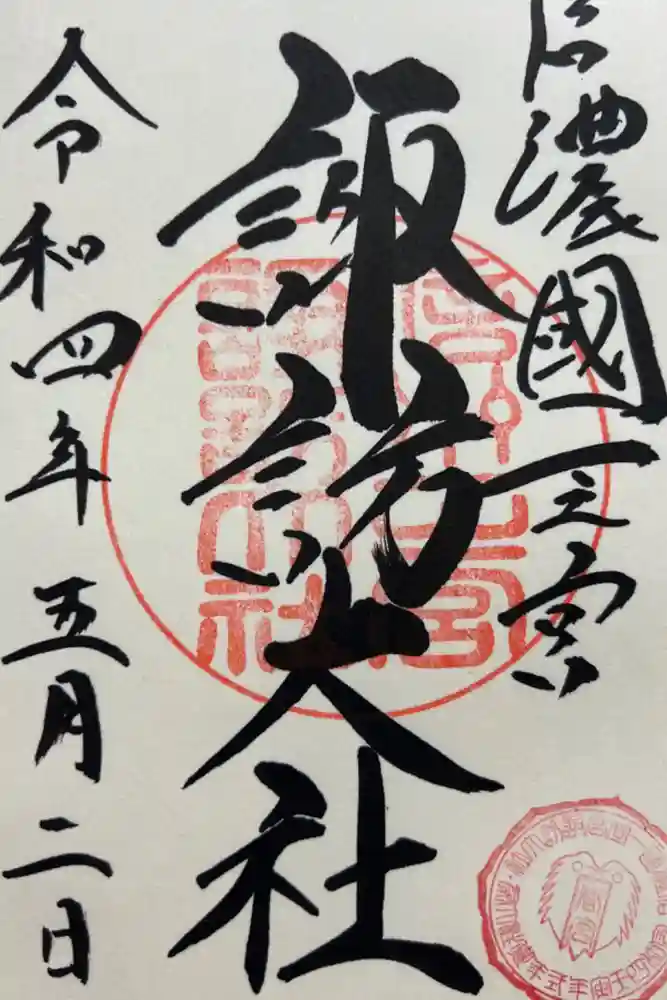 信濃國一之宮
諏訪大社
令和四年五月二日